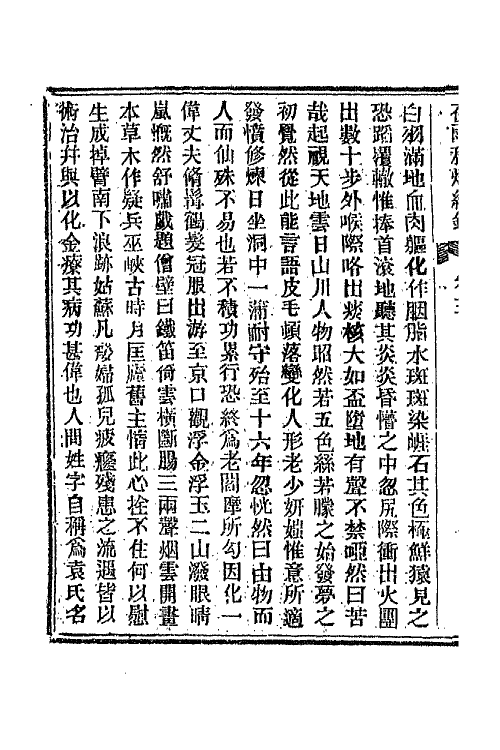 白羽滿地血肉軀化作胭脂水斑斑染峭石其色極鮮猿見之
恐蹈覆轍惟捧首滾地聽其炎炎昏懵之中忽尻際衝出火團
出數十步外喉際咯出痰核大如盃墮地有聲不禁啞然曰苦
哉起視天地雲日山川人物昭然若五色絲若矇之始發夢之
初覺然從此能言語皮毛頓落變化人形老少妍媸惟意所適
發憤修煉日坐洞中一蒲耐守殆至十六年忽恍然曰由物而
人而仙殊不易也若不積功累行恐終爲老閻摩所勾因化一
偉丈夫脩髯鶴髮冠服出游至京口觀浮金浮玉二山潑眼晴
嵐慨然舒嘯戲題僧壁曰鐵笛倚雲橫斷腸三兩聲烟雲開畫
本草木作疑兵巫峽古時月匡廬舊主情此心拴不住何以慰
生成掉臂南下浪跡姑蘇凡嫠婦孤兒疲癃殘患之流遇皆以
術治幷與以化金療其病功甚偉也人間姓字自稱爲袁氏名